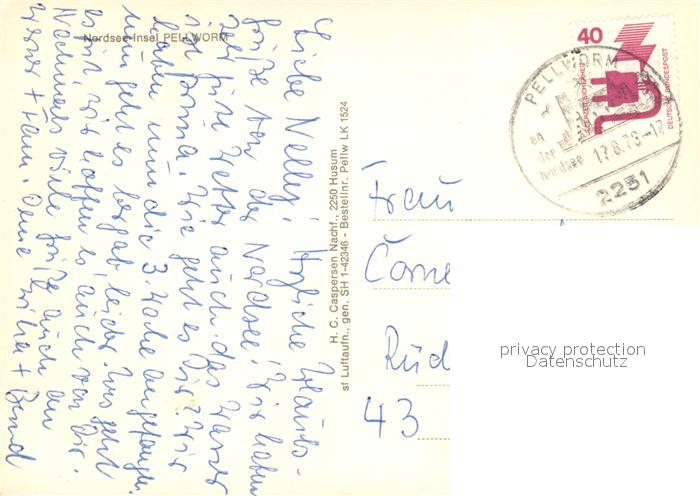 Nordsee-Insel PELLWORM
Liebe Nelly! Herzliche Urlaubs-
grüße von der Nordsee. Wir haben
sehr gutes Wetter auch das Wasser
ist prima. Wie geht es Dir? Wir
haben nun die 3. Woche angefangen.
nun geht es bergab leider. Uns geht
es gut wir hoffen es auch von Dir.
Nochmals viele Grüße auch an
+ Fam. Deine + Bernd
H. C. Caspersen Nachf., 2250 Husum
sf Luftaufn., gen. SH 1-42346 - Bestellnr. Pellw LK 1524
40
JEDERZEIT SICHERHEIT
DEUTSCHE BUNDESPOST
PELLWORM
an
der
Nordsee
17.8.76-17
2251
Frau
Corne
Rüd
43
privacy protection
Datenschutz